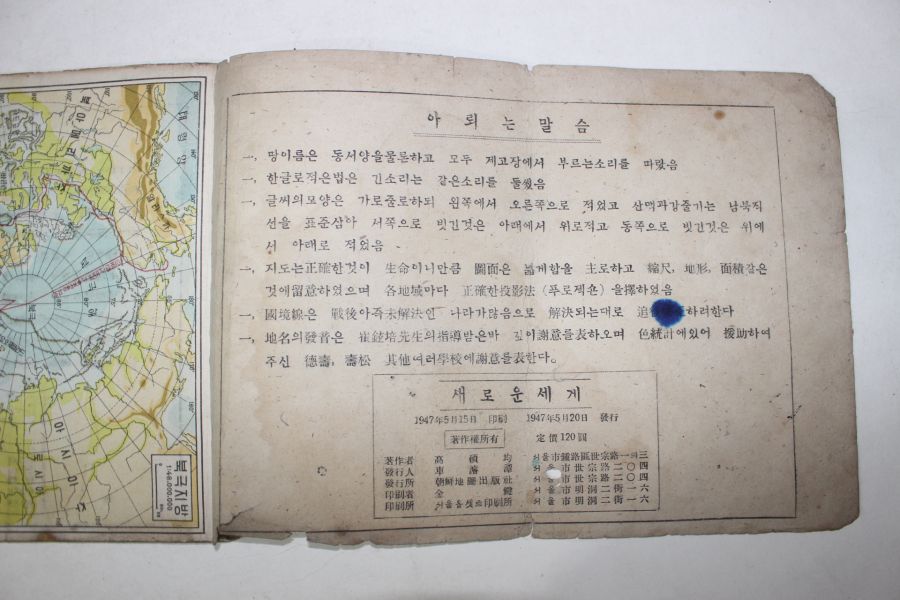 아뢰는말슴
一, 땅이름은 동서양을물론하고 모두 제고장에서 부르는소리를 따랐음
一, 한글로적은법은 긴소리는 같은소리를 둘썼음
一, 글씨의모양은 가로줄로하되 왼쪽에서 오른쪽으로 적었고 산맥과강줄기는 남북직
선을 표준삼아 서쪽으로 빗긴것은 아래에서 위로적고 동쪽으로 빗긴것은 위에
서 아래로 적었음
一, 지도는正確한것이 生命이니만큼 圖面은 넓게함을 主로하고 縮尺, 地形, 面積같은
것에留意하였으며 各地域마다 正確한投影法 (푸로젝숀) 을擇하였음
一, 國境線은 戰後아즉未解決인 나라가많음으로 解決되는대로 하려한다
一, 地名의發音은 崔鉉培先生의指導받은바 깊이謝意를表하오며 色統計에있어 援助하여
주신 德壽, 壽松 其他여러學校에謝意를表한다。
새로운세계
1947年5月15日 印刷 1947年5月20日 發行
著作權所有 定價120圓
著作者 高 均 서울市鍾路區世宗路一의三
發行人 車 서울市世宗路二〇四
發行所 朝鮮地圖出版社 서울市世宗路二〇四
印刷者 金 서울市明洞二街一六
印刷所 서울옵셑印刷所 서울市明洞二街一六
북극지방
1:48,000,000
태평양
아시아